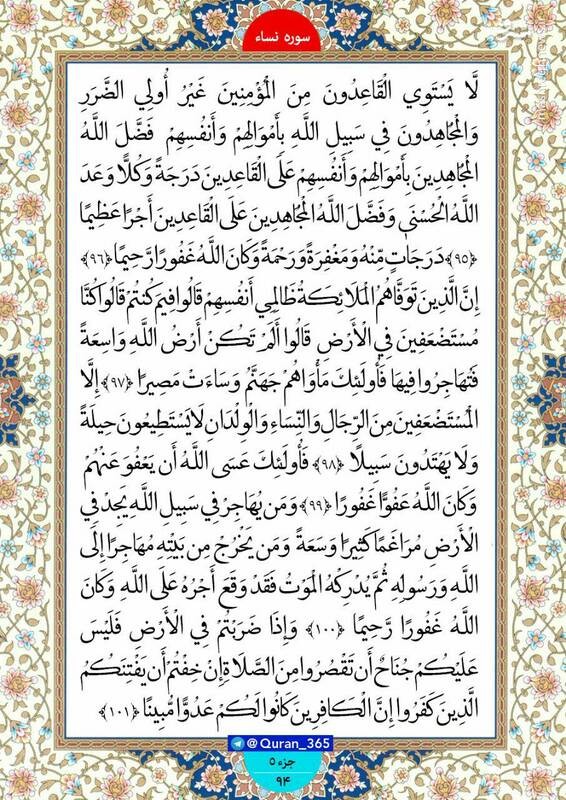 سوره نساء
لَّا يَسْتَوِي الْقَاعِدُونَ مِنَ الْمُؤْمِنِينَ غَيْرُ أُولِي الضَّرَرِ
وَالْمُجَاهِدُونَ فِي سَبِيلِ اللَّهِ بِأَمْوَالِهِمْ وَأَنْفُسِهِمْ فَضَّلَ اللَّهُ
الْمُجَاهِدِينَ بِأَمْوَالِهِمْ وَأَنْفُسِهِمْ عَلَى الْقَاعِدِينَ دَرَجَةً وَكُلًّا وَعَدَ
اللَّهُ الْحُسْنَى وَفَضَّلَ اللَّهُ الْمُجَاهِدِينَ عَلَى الْقَاعِدِينَ أَجْرًا عَظِيمًا
﴿۹۵﴾ دَرَجَاتٍ مِّنْهُ وَمَغْفِرَةً وَرَحْمَةً وَكَانَ اللَّهُ غَفُورًا رَّحِيمًا ﴿۹۶﴾
إِنَّ الَّذِينَ تَوَفَّاهُمُ الْمَلَائِكَةُ ظَالِمِي أَنْفُسِهِمْ قَالُوا فِيمَ كُنتُمْ قَالُوا كُنَّا
مُسْتَضْعَفِينَ فِي الْأَرْضِ قَالُوا أَلَمْ تَكُنْ أَرْضُ اللَّهِ وَاسِعَةً
فَتُهَاجِرُوا فِيهَا فَأُولَئِكَ مَأْوَاهُمْ جَهَنَّمُ وَسَاءَتْ مَصِيرًا ﴿۹۷﴾ إِلَّا
الْمُسْتَضْعَفِينَ مِنَ الرِّجَالِ وَالنِّسَاءِ وَالْوِلْدَانِ لَا يَسْتَطِيعُونَ حِيلَةً
وَلَا يَهْتَدُونَ سَبِيلًا ﴿۹۸﴾ فَأُولَئِكَ عَسَى اللَّهُ أَن يَعْفُوَ عَنْهُمْ
وَكَانَ اللَّهُ عَفُوًّا غَفُورًا ﴿۹۹﴾ وَمَن يُهَاجِرْ فِي سَبِيلِ اللَّهِ يَجِدْ فِي
الْأَرْضِ مُرَاغَمًا كَثِيرًا وَسَعَةً وَمَن يَخْرُجْ مِن بَيْتِهِ مُهَاجِرًا إِلَى
اللَّهِ وَرَسُولِهِ ثُمَّ يُدْرِكْهُ الْمَوْتُ فَقَدْ وَقَعَ أَجْرُهُ عَلَى اللَّهِ وَكَانَ
اللَّهُ غَفُورًا رَّحِيمًا ﴿۱۰۰﴾ وَإِذَا ضَرَبْتُمْ فِي الْأَرْضِ فَلَيْسَ
عَلَيْكُمْ جُنَاحٌ أَن تَقْصُرُوا مِنَ الصَّلَاةِ إِنْ خِفْتُمْ أَن يَفْتِنَكُمُ
الَّذِينَ كَفَرُوا إِنَّ الْكَافِرِينَ كَانُوا لَكُمْ عَدُوًّا مُّبِينًا ﴿۱۰۱﴾
@Quran_365
جزء ۵
۹۴